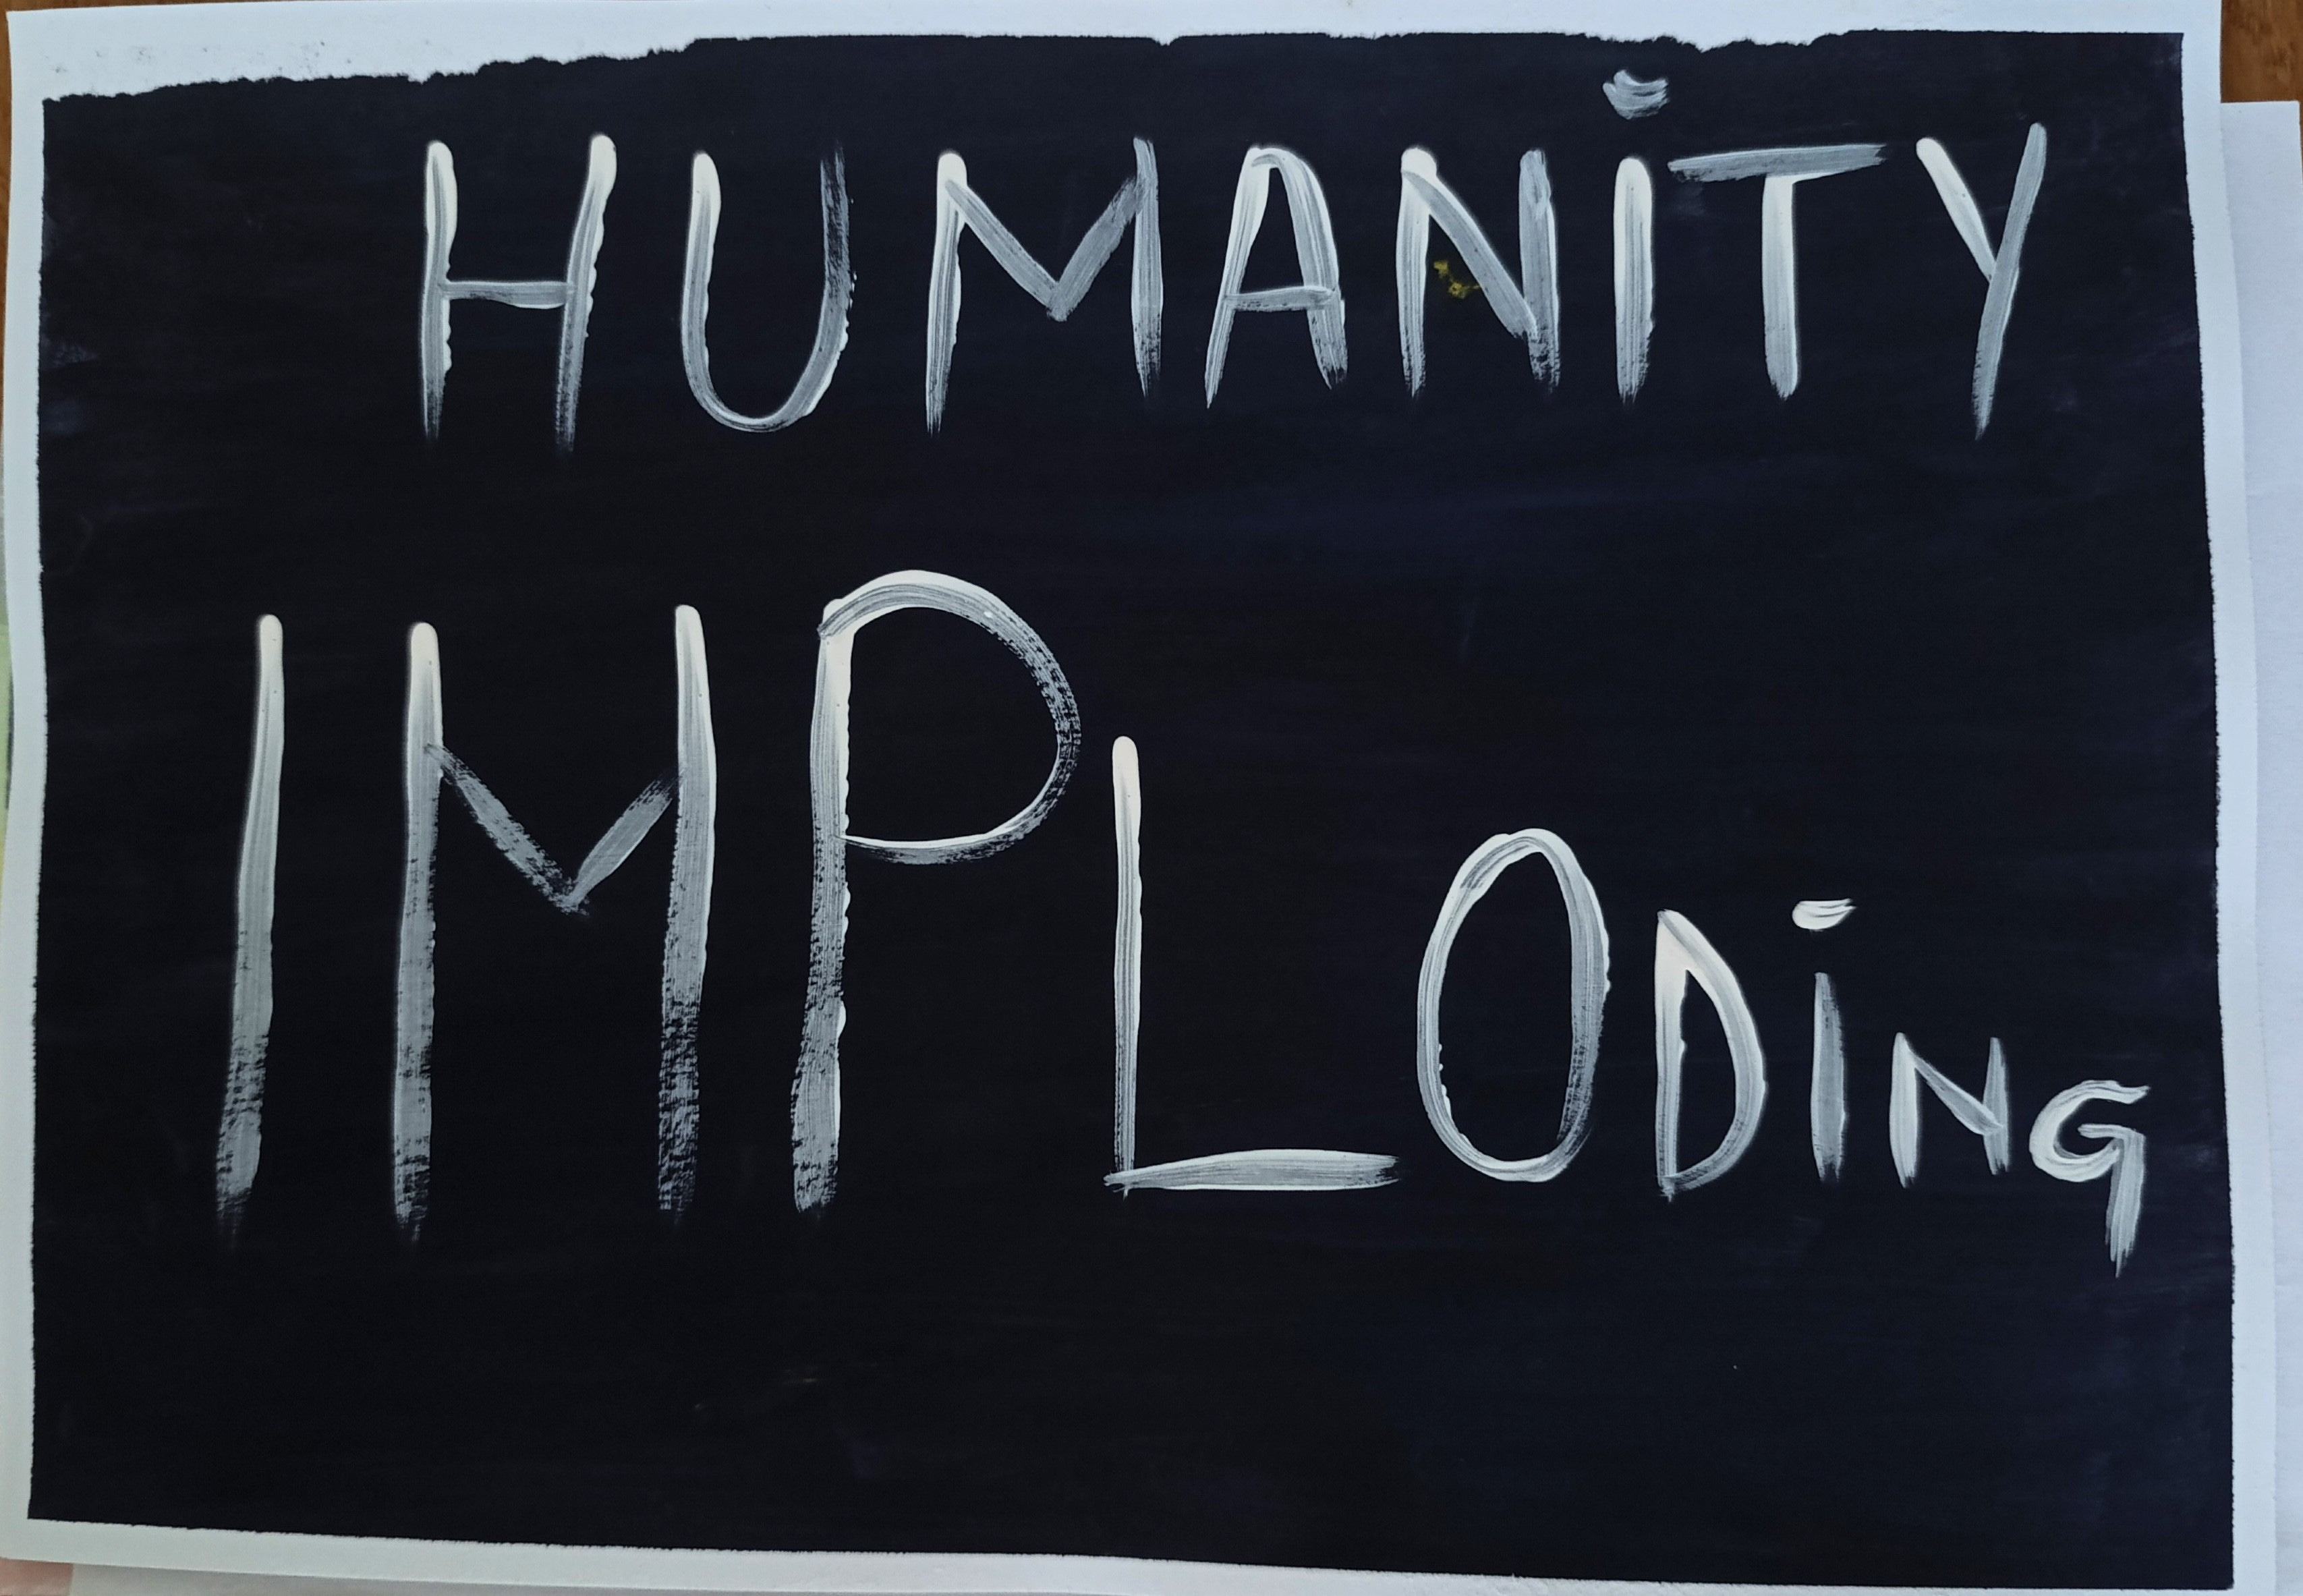 HUMANiTY
IMPLODiNG